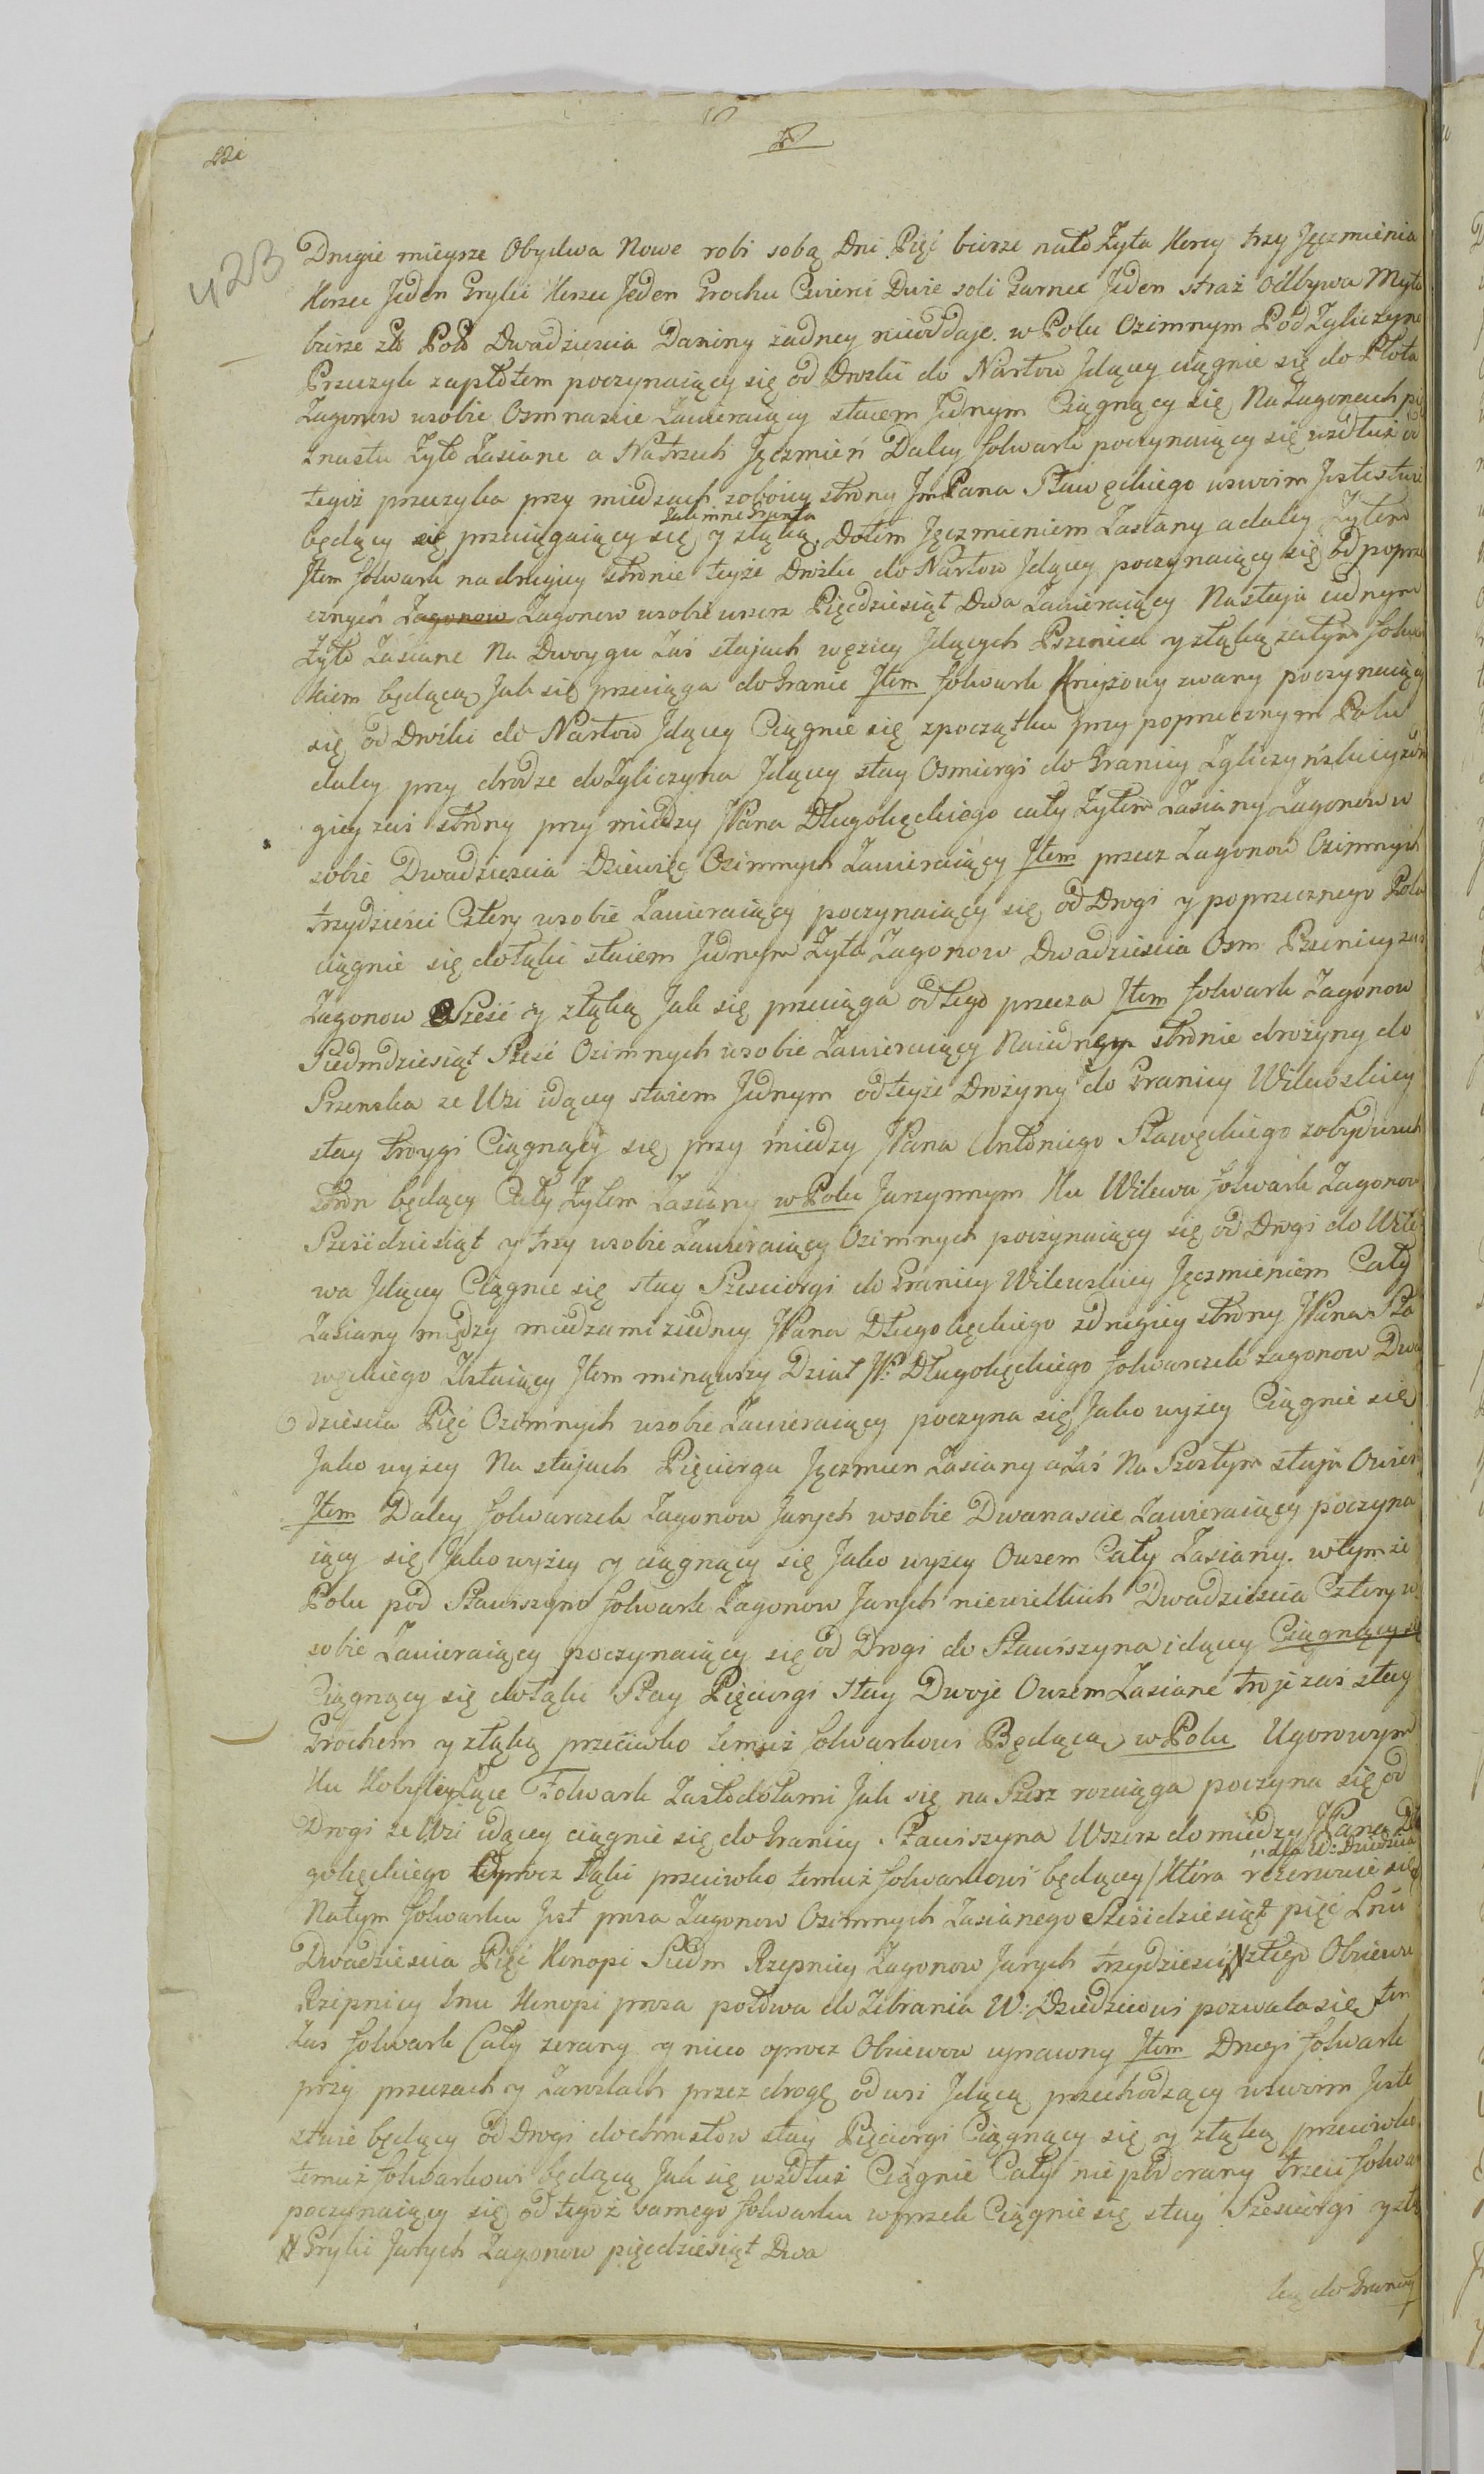 423
Drugie mieysze Obydwa Nowe robi sobą Dni Pięć bierze nato Żyta Korcy trzy Jęczmienia
Korzec Jeden Gryki Korzec Jeden Grochu Cwierci Dwie soli Garnec Jeden straż Odbywa Myto
bierze zł Pol Dwadziescia Daniny żadney nieoddaje. w Polu Ozimnym Pod Zgliczyn
Przeczyk zapłotem poczynaiący się od Drożki do Nartow Jdącey ciągnie się do Płota
Zagonow wsobie Osmnascie Zawieraiący staiem Jednym Ciągnący się Na Zagonach pię
tnastu Zyto Zasiane a Natrzech Jęczmień Daley folwark poczynaiący się wzdłuż od
tegoż przeczyka przy miedzach zoboiey strony Jm Pana Sławęckiego wswoim Jestestwie
będący się przeciągaiący się jak inne Grunta y złąką. Dotim Jęczmieniem Zasiany a daley Zytem
Jtem folwark na drugiey stronie teyże Drożki do Nartow Jdącey poczynaiący się od poprze
cznych Zagonow Zagonow wsobie wszerz Pięćdziesiąt Dwa Zawieraiący Nastaja iednym
Zyto Zasiane Na Dwoygu Zaś stajach węziey Jdących Pszenica y złąką zatym folwar
kiem będącą Jak się przeciąga do Granic Jtem folwark Kniężowy zwany poczynaiący
się od Drożki do Nartow Jdącey Ciągnie się zpoczątku przy poprzecznym Polu
daley przy drodze do Zgliczyna Jdącey stay Osmiorgi do Granicy Zgliczyńskiey zdru
giey zaś strony przy miedzy JPana Długołęckiego cały Zytem Zasiany Zagonow w
sobie Dwadziescia Dziewięć Ozimnych Zawieraiący Jtem przez Zagonow Ozimnych
trzydziesci Cztery wsobie Zawieraiący poczynaiący się od Drogi y poprzecznego Pola
ciągnie się dołąki staiem Jednym Zyta Zagonow Dwadziescia Osm Pszenicy zas
Zagonow Szesć y złąką Jak się przeciąga od tego przecza Jtem folwark Zagonow
Siedmdziesiąt Szesć Ozimnych wsobie Zawieraiący Naiedney stronie drożyny do
Przenska ze Wsi idącey staiem Jednym od teyże Drożyny do Granicy Wilewskiey
stay troygi Ciągnący się przy miedzy JPana Antoniego Sławęckiego zobydwuch
stron będący Cały Zytem Zasiany w Polu Jarzynnym Ku Wilewa folwark Zagonow
Szesćdziesiąt y trzy wsobie Zawieraiący Ozimnych poczynaiący się od Drogi do Wile
wa Jdącey Ciągnie się stay Szesciorgi do Granicy Wilewskiey Jęczmieniem Cały
Zasiany między miedzami ziedney JPana Długołęckiego zdrugiey strony JPana Sła
węckiego Zostaiący Jtem minąwszy Dział JP: Długołęckiego folwarczek zagonow Dwa
dziescia Pięć Ozimnych wsobie Zawieraiący poczyna się Jako wyżey Ciągnie się
Jako wyżey Na stajach Pięciorga Jęczmien Zasiany a Zaś Na Szostym staja Owies
Jtem Daley folwarczek Zagonow Jarych wsobie Dwanascie Zawieraiący poczyna
iący się Jako wyżey y ciągnący się Jako wyżey Owsem Cały Zasiany. wtymże
Polu pod Sławiszyno folwark Zagonow Jarych niewielkich Dwadziescia Cztery w
sobie Zawieraiący poczynaiący się od Drogi do Sławiszyna idącey Ciągnący się
Ciągnący się dołąki Stay Pięciorgi Stay Dwoje Owsem Zasiane troje zaś stay
Grochem y złąką przeciwko temuż folwarkowi Będącą w Polu Ugorowym
Ku Kobyley Łące Folwark Zastodołami Jak się na Szerz rozciąga poczyna się od
Drogi ze Wsi idącey ciągnie się do Granicy Sławiszyna Wszerz do miedzy JPana Dłu
gołęckiego Oprocz Łąki przeciwko temuż folwarkowi będącey / Która dla W: Dziedzica rezerwuie się
Natym folwarku Jest prosa Zagonow Ozimnych Zasianego Szesćdziesiąt pięć Lnu
Dwadziescia Pięć Konopi Siedm Rzepnicy Zagonow Jarych trzydziesci # ztego Obsiewu
Rzepnicy Lnu Konopi prosa połowa do Zebrania W: Dziedzicowi pozwala się ten
Zas folwark Cały zorany y nieco oprocz Obsiewow uprawny Jtem Drugi folwark
przy przeczach y Zaroslach przez drogę od wsi Jdącą przechodzący wswoim Jeste
stwie będący od Drogi do chrustow stay Pięciorgi Ciągnący się y złąką przeciwko
temuż folwarkowi będącą Jak się wzdłuż Ciągnie Cały nie podorany trzeci folwark
poczynaiący się od tegoż samego folwarku wprzek Ciągnie się stay Szesciorgi y złą
# Gryki Jarych Zagonow pięćdziesiąt Dwa
ką do Granicy